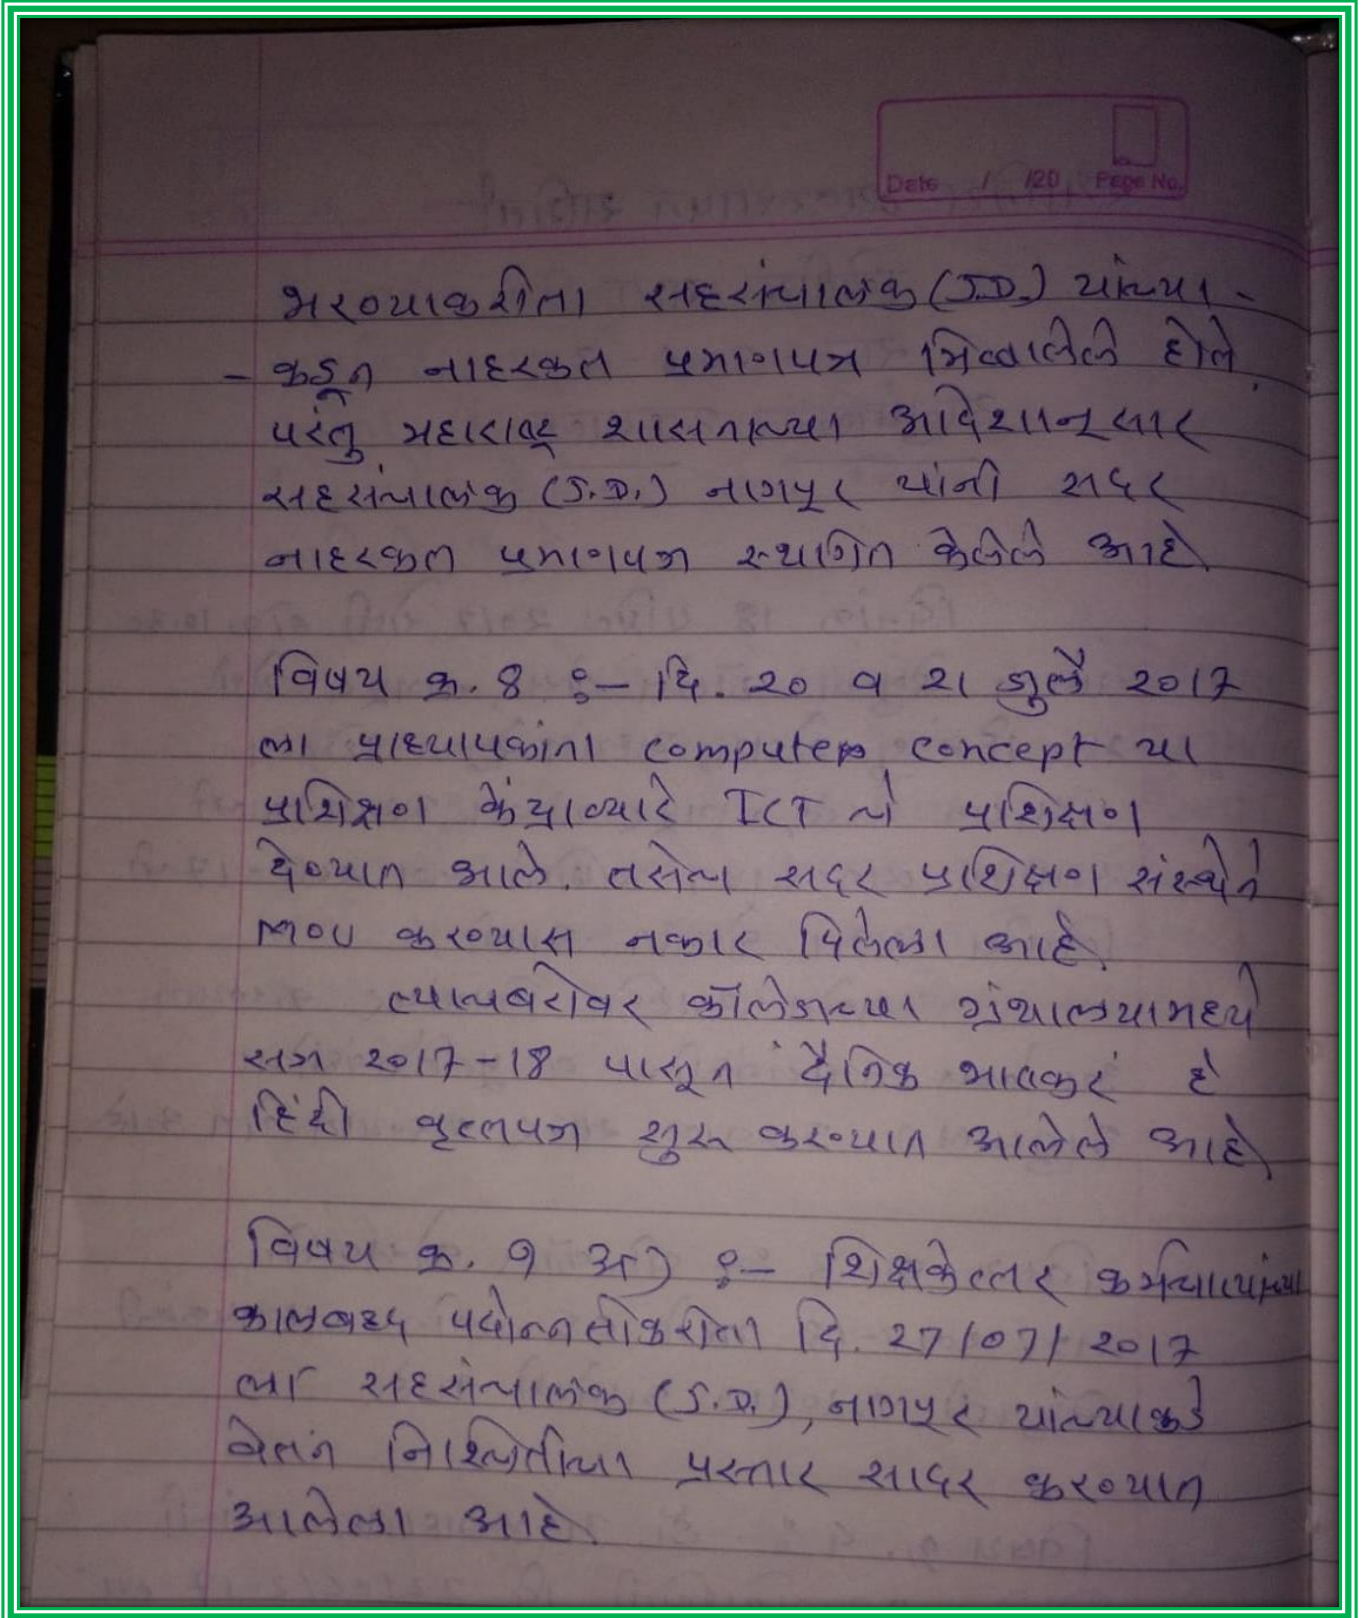 Date / /20 Page No.
भरण्याकरीता सहसंचालक (J.D.) यांच्या -
- कडून नाहरकत प्रमाणपत्र मिळालेले होते.
परंतु महाराष्ट्र शासनाच्या आदेशानुसार
सहसंचालक (J.D.) नागपूर यांनी सदर
नाहरकत प्रमाणपत्र स्थगित केलेले आहे.
विषय क्र. 8 :- दि. २० व २१ जुलै २०१७
ला प्राध्यापकांना computer concept या
प्रशिक्षण केंद्राव्दारे ICT चे प्रशिक्षण
देण्यात आले. तसेच सदर प्रशिक्षण संस्थेने
MOU करण्यास नकार दिलेला आहे.
त्याचबरोबर कॉलेजच्या ग्रंथालयामध्ये
सत्र २०१७-१8 पासून दैनिक भास्कर हे
हिंदी वृत्तपत्र सुरू करण्यात आलेले आहे.
विषय क्र. 9 अ) :- शिक्षकेत्तर कर्मचाऱ्यांच्या
कालबध्द पदोन्नतीकरीता दि. 27/07/2017
ला सहसंचालक (J.D.), नागपूर यांच्याकडे
वेतन निश्चितीचा प्रस्ताव सादर करण्यात
आलेला आहे.